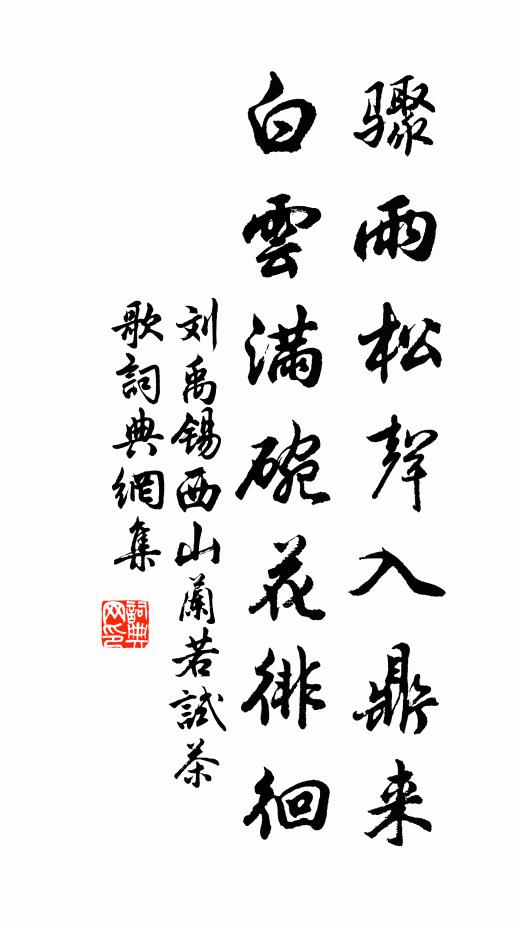 骤雨松聲入鼎来
白雲满碗花徘徊
刘禹锡西山蘭若試茶
歌詞典網集
詞典網印